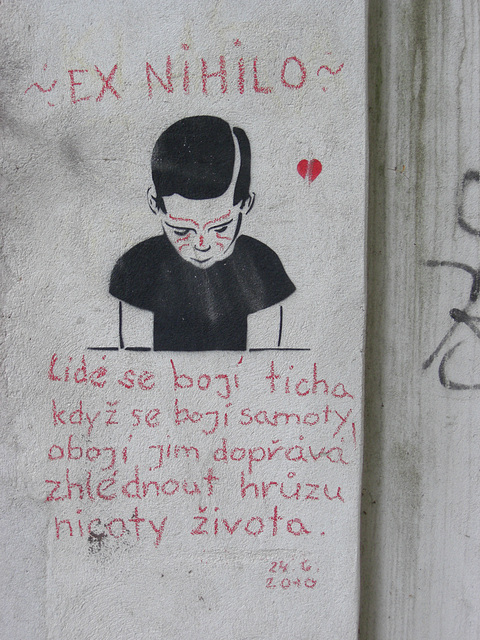 ~ EX NIHILO ~
Lidé se bojí ticha
když se bojí samoty,
obojí jim dopřává
zhlédnout hrůzu
nicoty života.
24. 6.
2010